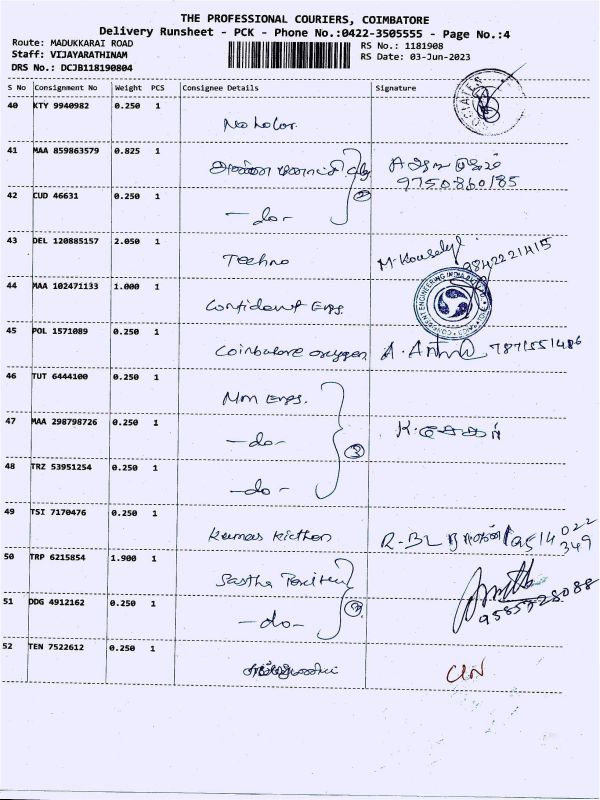 THE PROFESSIONAL COURIERS, COIMBATORE
Delivery Runsheet - PCK - Phone No.:0422-3505555 - Page No.:4
Route: MADUKKARAI ROAD
Staff: VIJAYARATHINAM
DRS No.: DCJB118190804
RS No.: 1181908
RS Date: 03-Jun-2023
S No Consignment No Weight PCS Consignee Details Signature
40 KTY 9940982 0.250 1
41 MAA 859863579 0.825 1
9750860185
42 CUD 46631 0.250 1
-do-
2
43 DEL 120885157 2.050 1
Techno
9842221415
44 MAA 102471133 1.000 1
Confident Engs.
CONFIDENT ENGINEERING INDIA
45 POL 1571089 0.250 1
Coimbatore oxygen A. 7871551486
46 TUT 6444100 0.250 1
Mm Engs.
47 MAA 298798726 0.250 1
-do- K.
3
48 TRZ 53951254 0.250 1
-do-
49 TSI 7170476 0.250 1
Kumas 9514 022 349
50 TRP 6215854 1.900 1
Sastha
9585728088
51 DDG 4912162 0.250 1
-do-
52 TEN 7522612 0.250 1